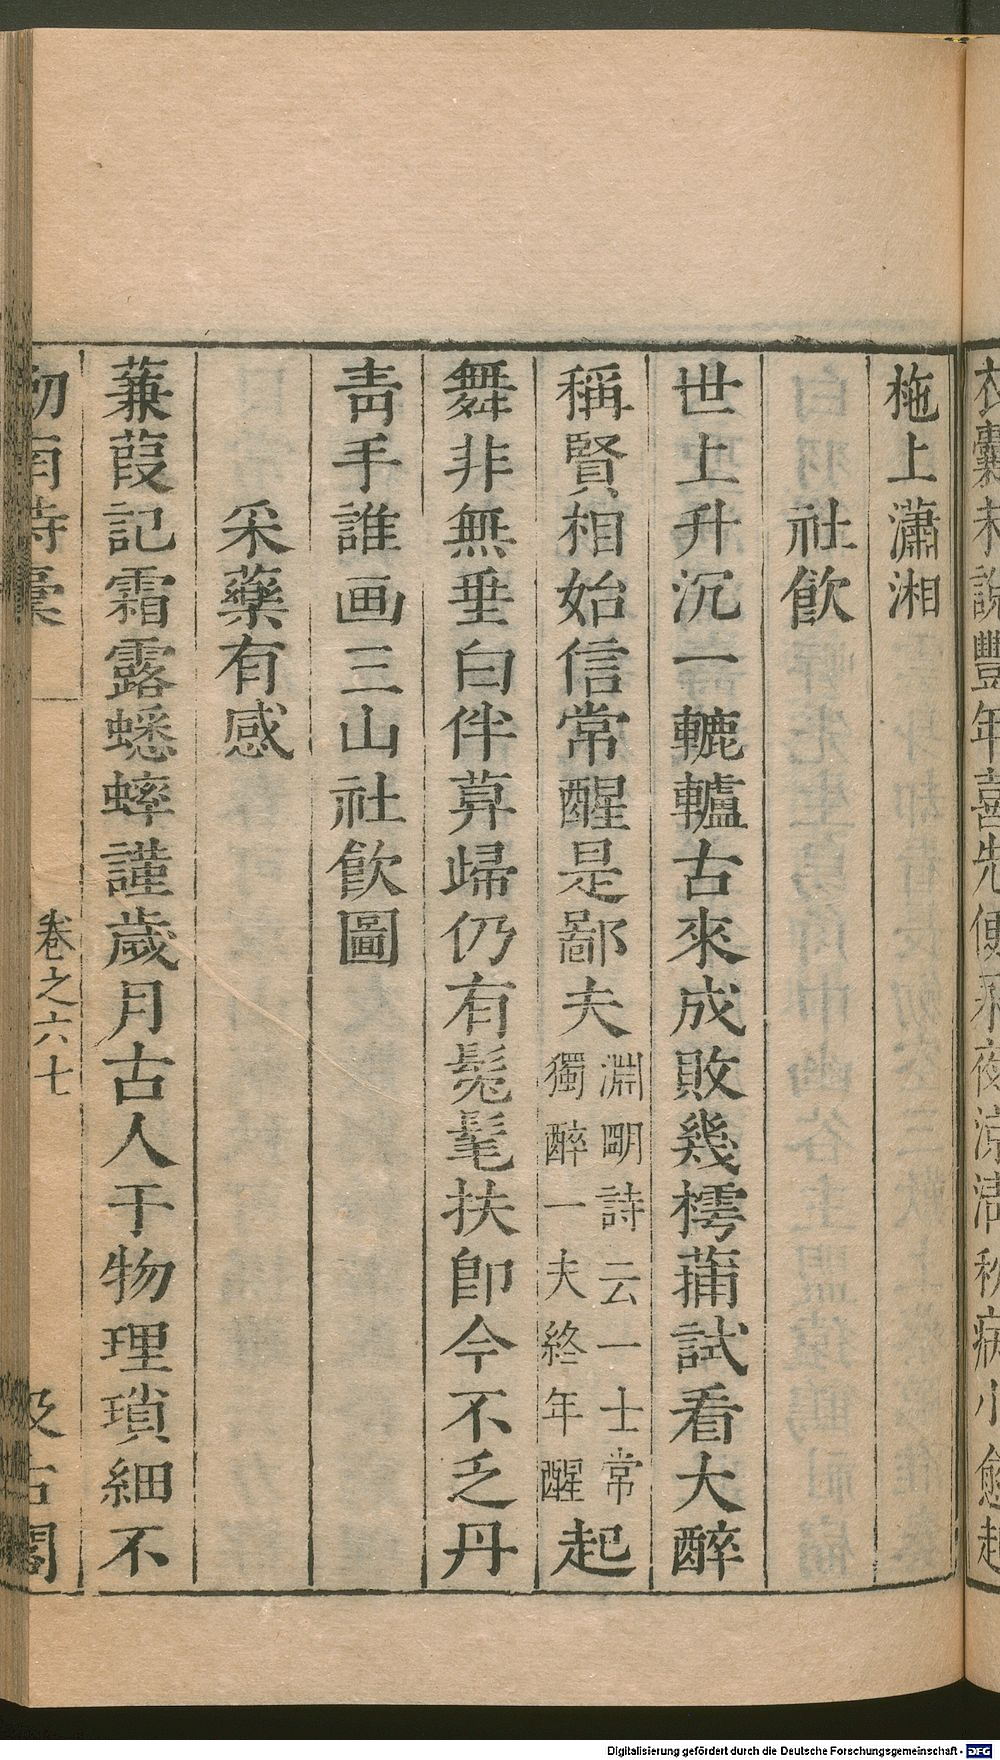 衣囊未說豐年喜先便不夜涼淸秋病小愈起
柂上瀟湘
社飮
世上升沉一轆轤古來成敗幾樗蒲試看大醉
稱賢相始信常醒是鄙夫淵明詩云一士常獨醉一夫終年醒起
舞非無垂白伴算歸仍有髧髦扶卽今不乏丹
靑手誰画三山社飮圖
采藥有感
蒹葭記霜露蟋蟀謹歲月古人干物理瑣細不
劒南詩稾
卷之六十七
汲古閣
Digitalisierung gefördert durch die Deutsche Forschungsgemeinschaft - DFG